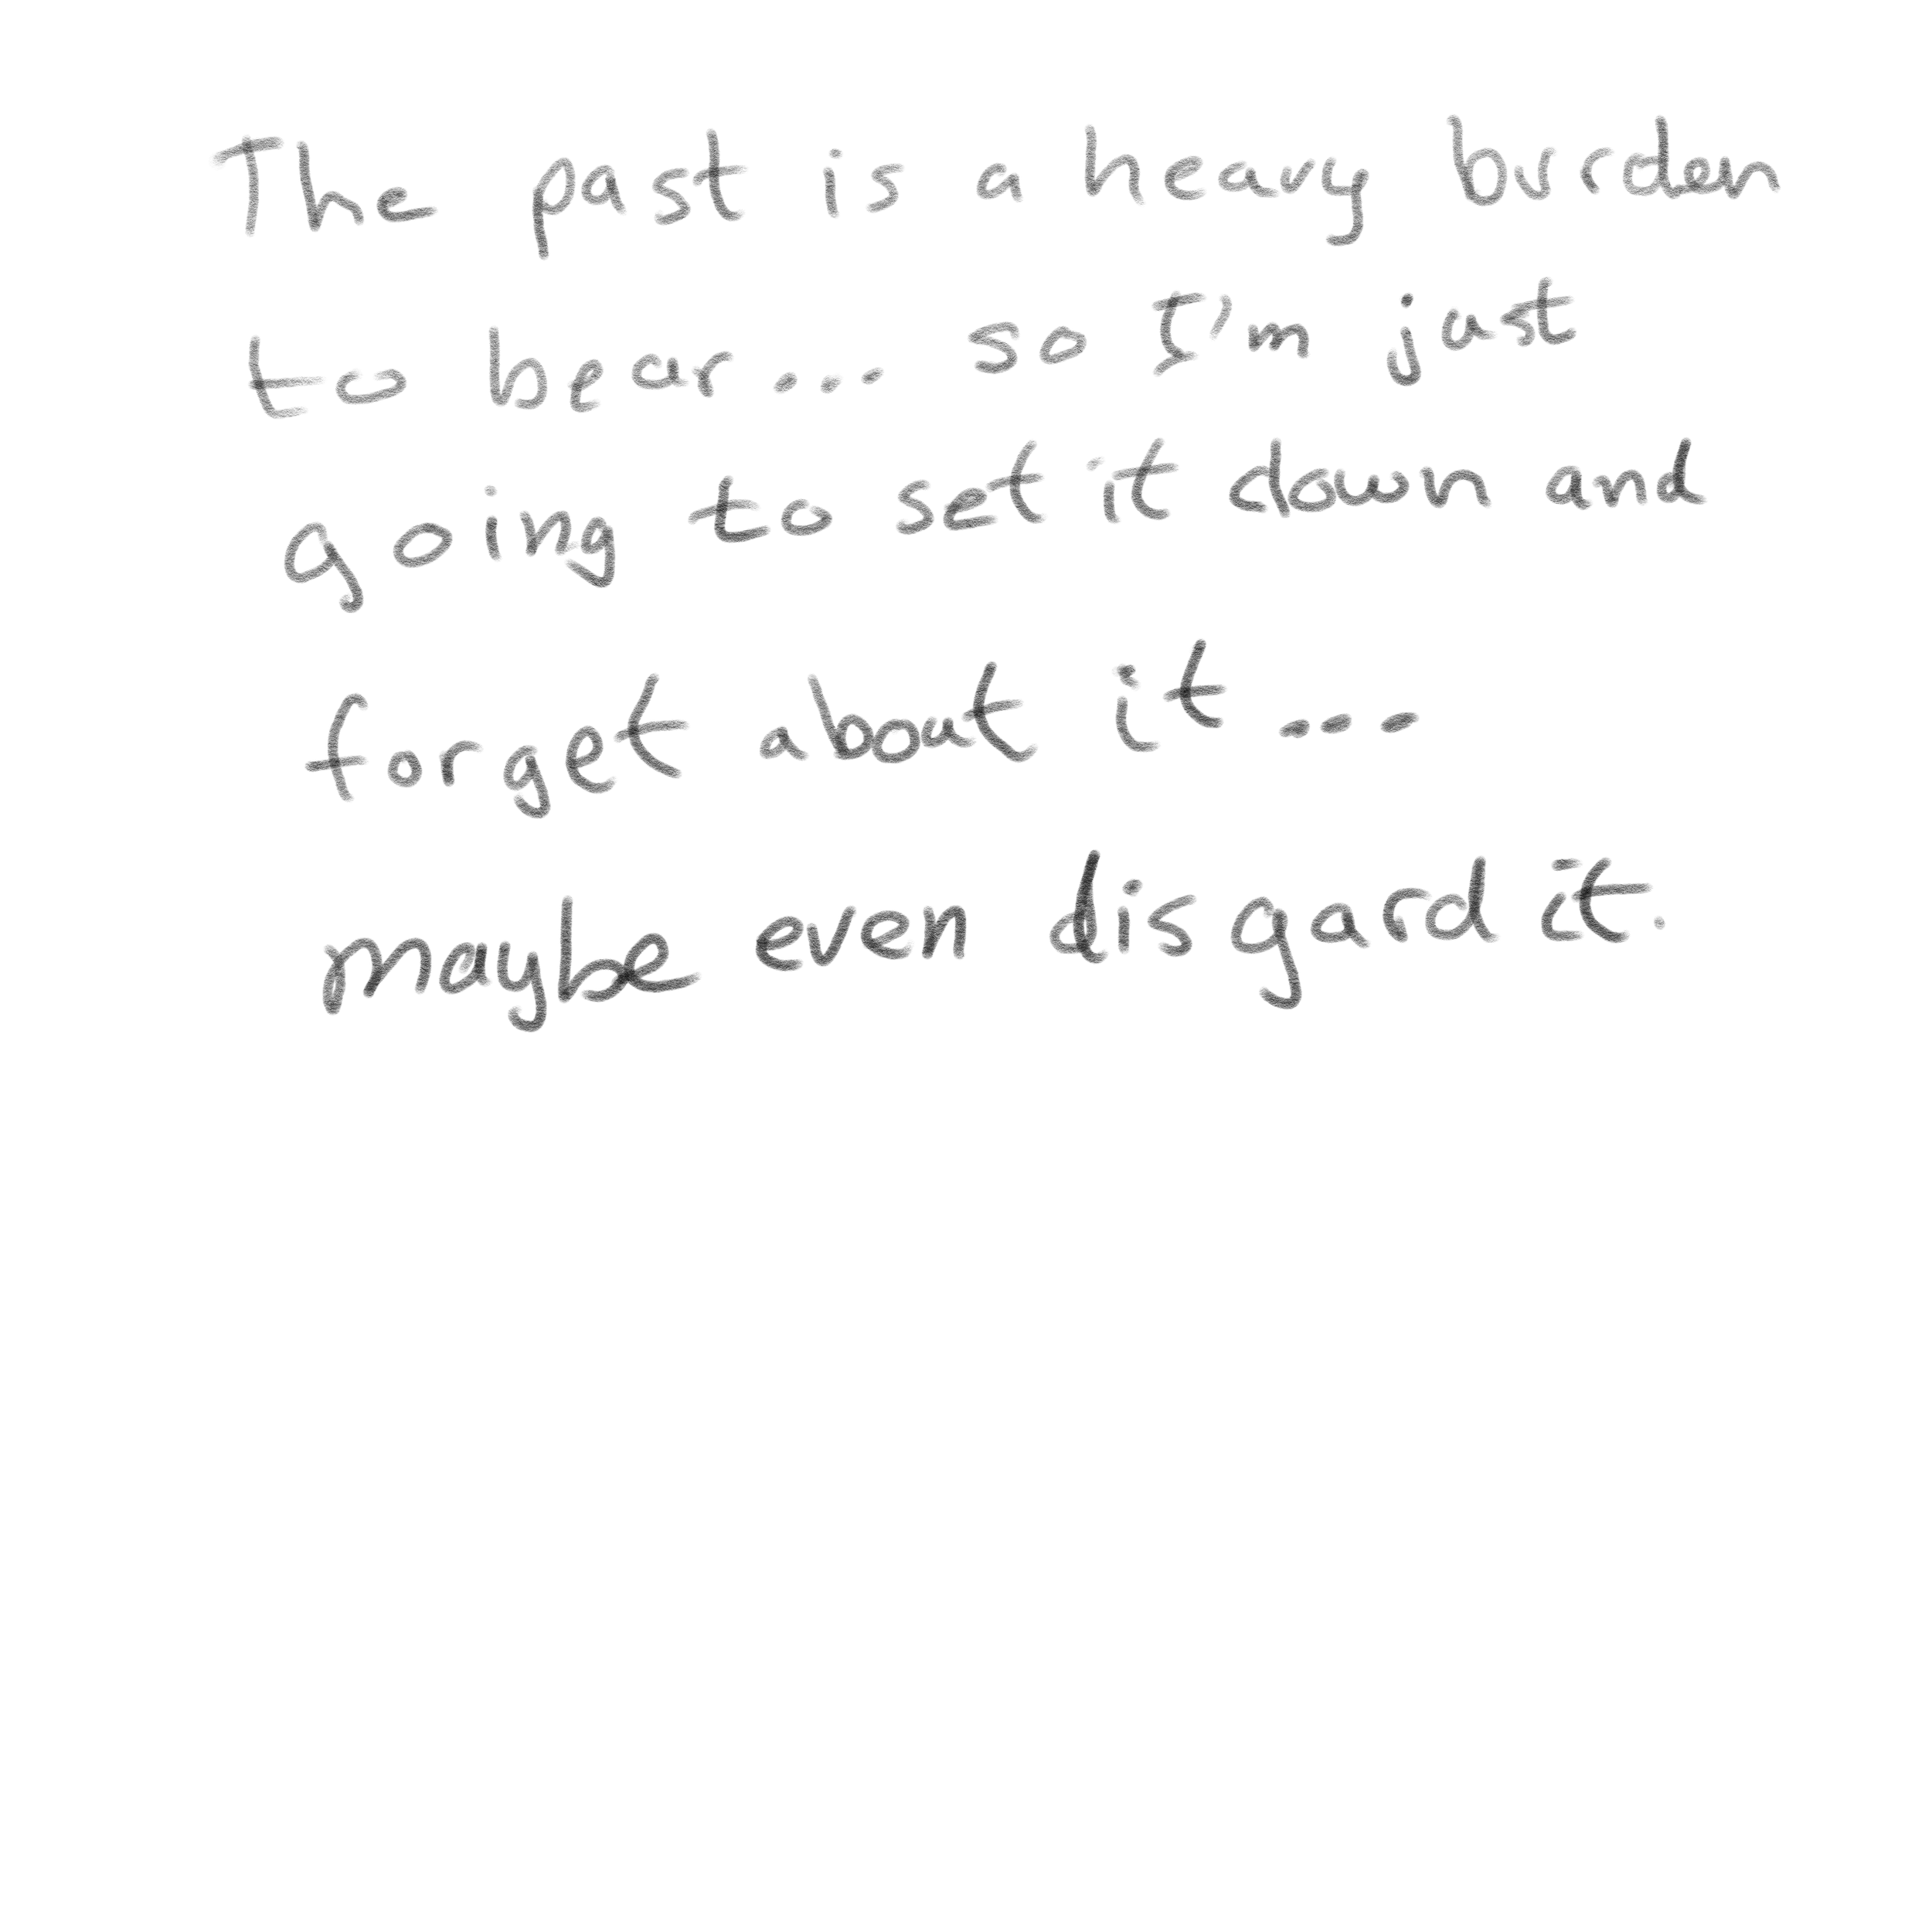 The past is a heavy burden
to bear... so I'm just
going to set it down and
forget about it...
maybe even disgard it.